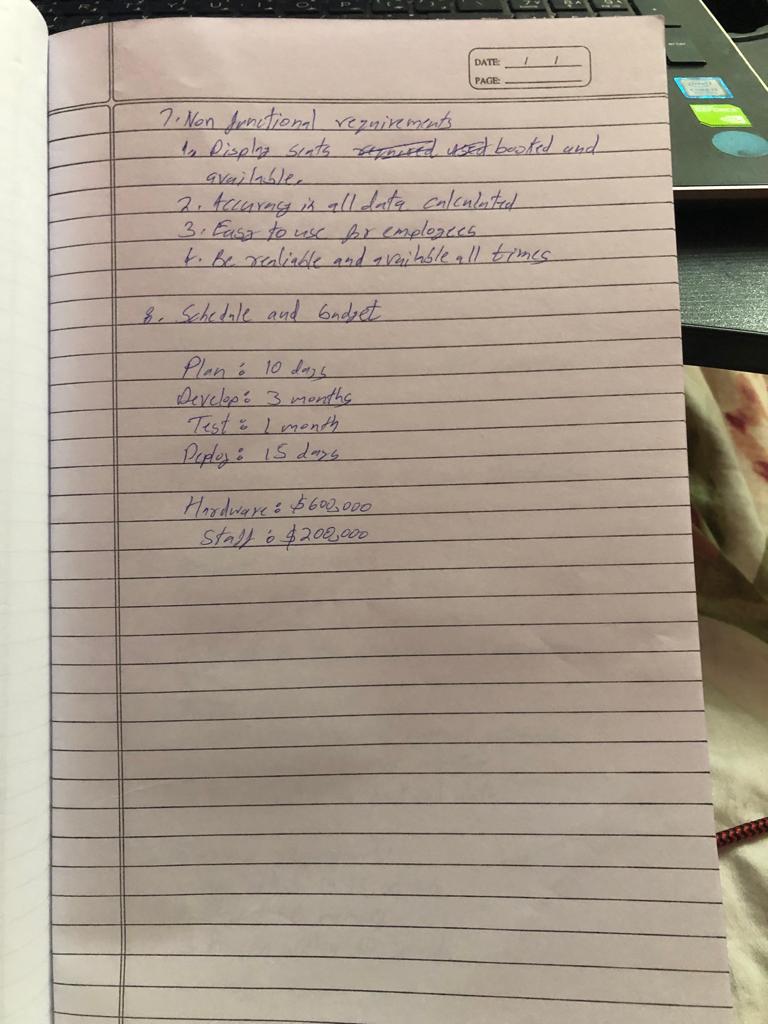 DATE: / /
PAGE:
7. Non functional requirements
1. Display seats required used booked and
available.
2. Accuracy in all data calculated
3. Easy to use for employees
4. Be realiable and available all times
8. Schedule and budget
Plan : 10 days
Develop : 3 months
Test : 1 month
Deploy : 15 days
Hardware : $600,000
Staff : $200,000